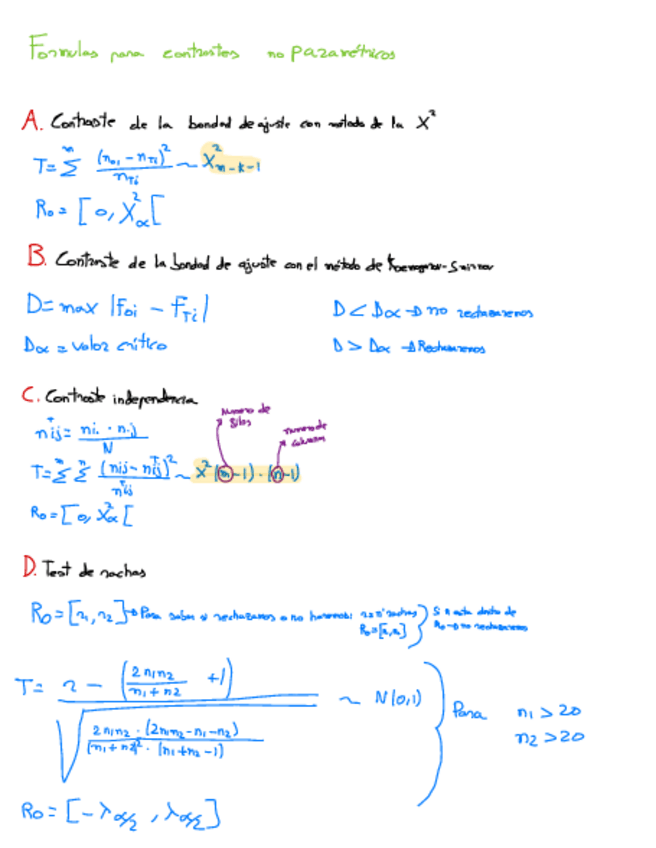 Formulas para contrastes no parametricos
A. Contraste de la bondad de ajuste con metodo de la X²
T = Σ^m (n_oi - n_Ti)² / n_Ti ~ X²_m-k-1
R₀ = [0, X²_α[
B. Contraste de la bondad de ajuste con el método de
D = max |F_oi - F_Ti|
D < D_α → no rechazaremos
D_α = valor crítico
D > D_α → Rechazaremos
C. Contraste independencia
numero de filas
numero de columnas
n^T_ij = n_i. · n_.j / N
T = Σ^m Σ^n (n_ij - n^T_ij)² / n^T_ij ~ X² (m-1) · (n-1)
R₀ = [0, X²_α[
D. Test de rachas
R₀ = [r₁, r₂] → Para saber si rechazamos o no haremos: rachas
R₀ = [r₁, r₂]
Si r esta dentro de
R₀ → no rechazaremos
T = r - (2n₁n₂ / n₁+n₂ + 1) / √(2n₁n₂ · (2n₁n₂-n₁-n₂) / (n₁+n₂)² · (n₁+n₂-1)) ~ N(0,1)
Para n₁ > 20
n₂ > 20
R₀ = [-λ_α/2, λ_α/2]